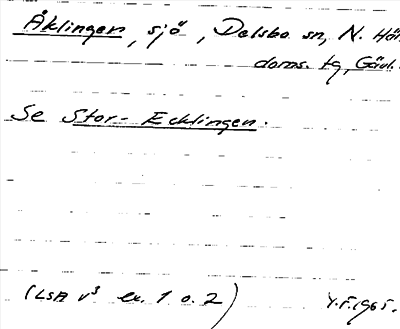 Åklingen, sjö, Delsbo sn, N. Häl.
doms. tg, Gävl.
Se Stor-Ecklingen.
(LSA v³ ex. 1 o. 2) Y.F. 1965.